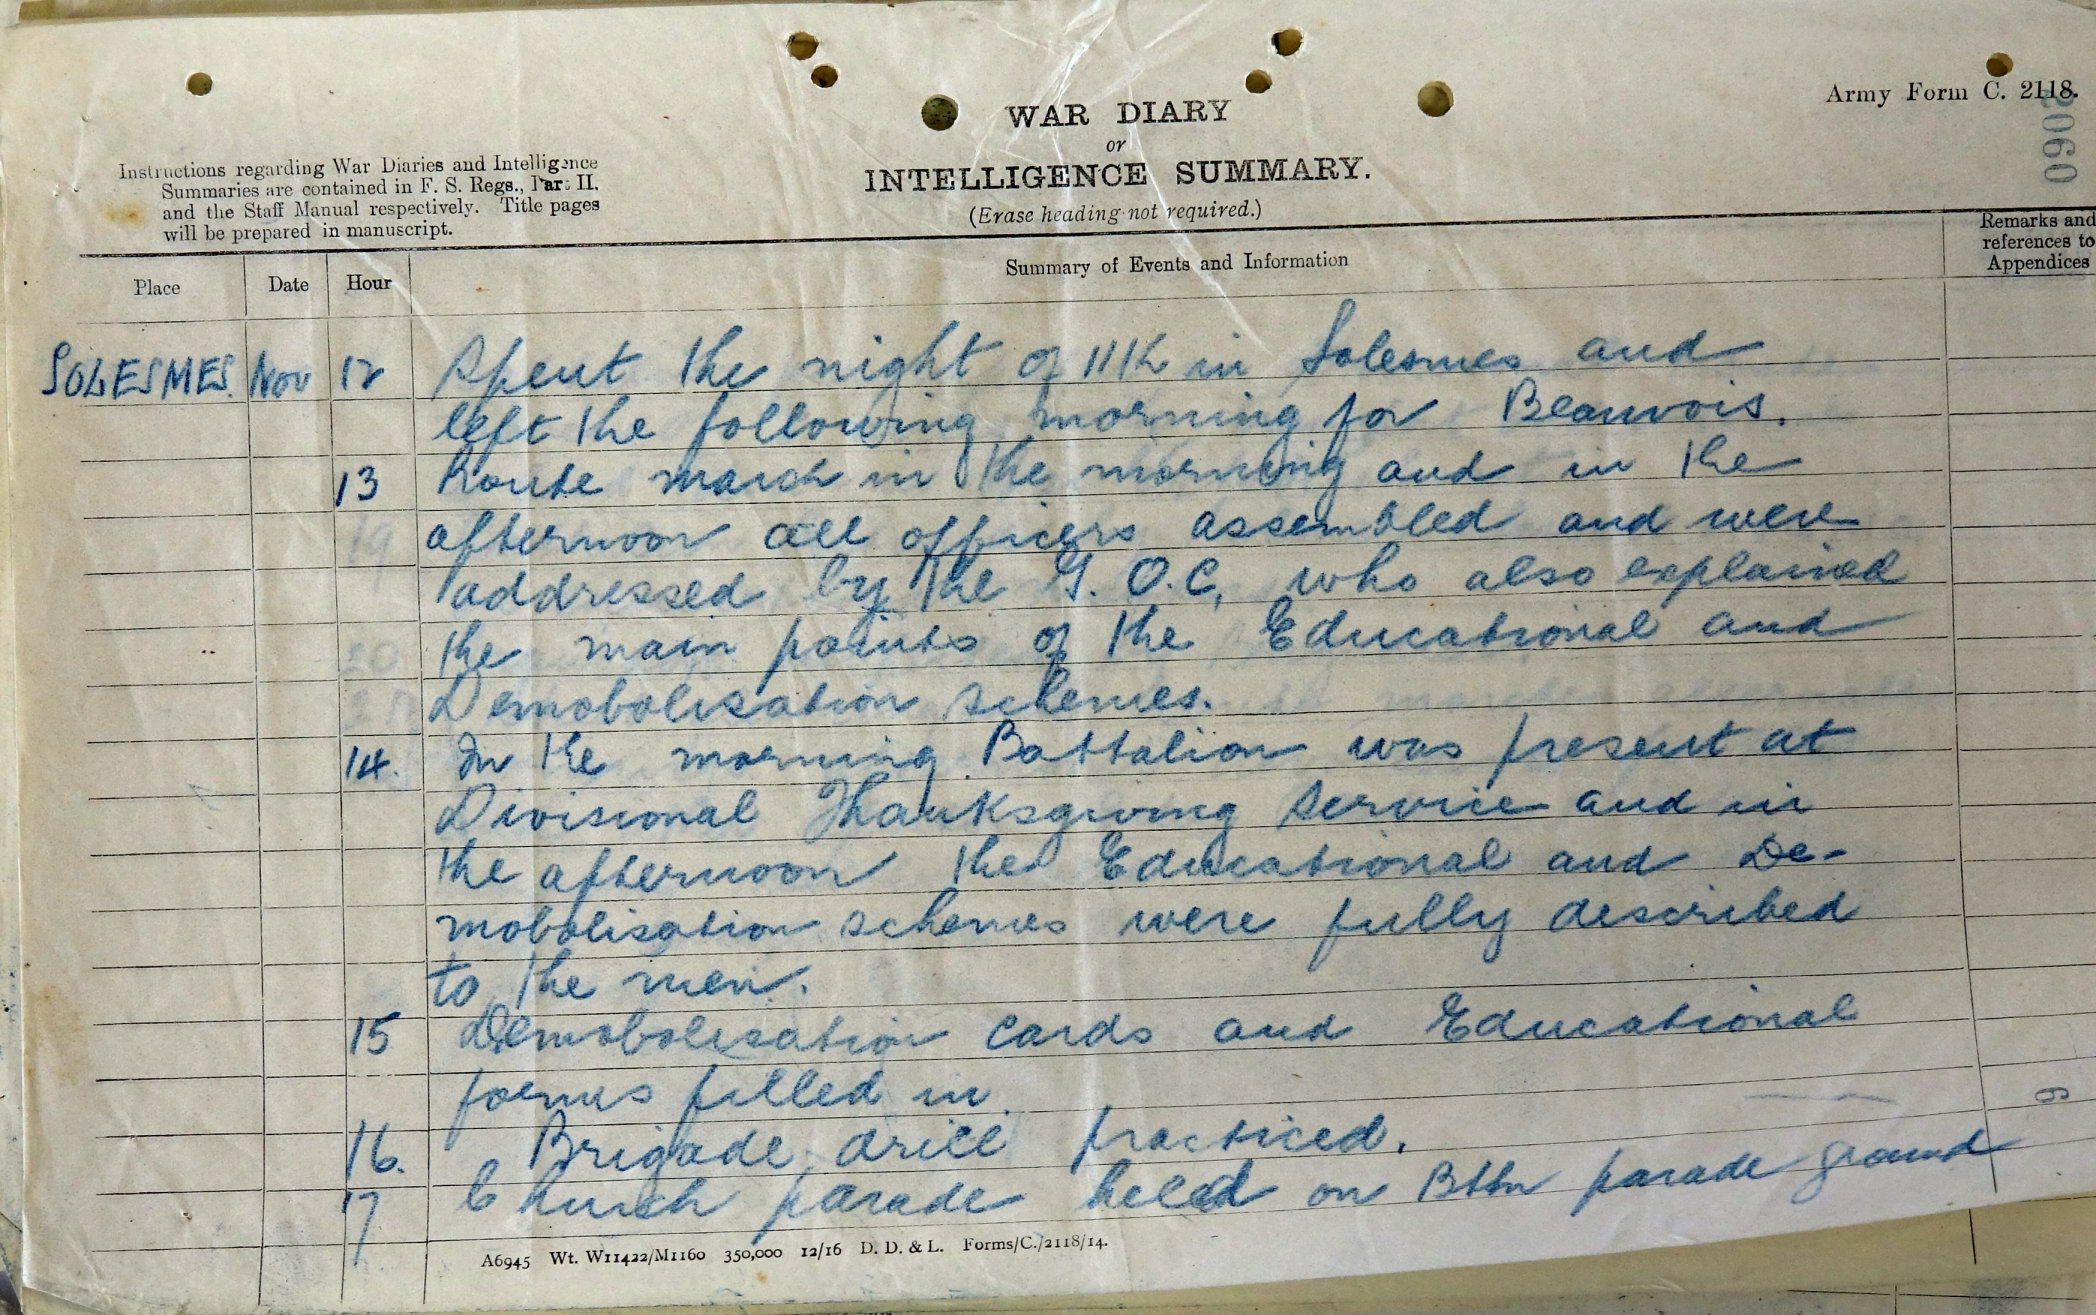 Army Form C. 2118.
2060
WAR DIARY
or
INTELLIGENCE SUMMARY.
(Erase heading not required.)
Instructions regarding War Diaries and Intelligence
Summaries are contained in F. S. Regs., Part II.
and the Staff Manual respectively. Title pages
will be prepared in manuscript.
Place Date Hour Summary of Events and Information Remarks and
references to
Appendices
SOLESMES. Nov 12 Spent the night of 11th in Solesmes and
left the following morning for Beauvois.
13 Route march in the morning and in the
afternoon all officers assembled and were
addressed by the G.O.C, who also explained
the main points of the Educational and
Demobolisation schemes.
14. In the morning Battalion was present at
Divisional Thanksgiving Service and in
the afternoon the Educational and De-
mobolisation schemes were fully described
to the men.
15 Demobolisation cards and Educational
forms filled in.
16. Brigade drill practiced.
17 Church parade held on Bttn parade ground
A6945 Wt. W11422/M1160 350,000 12/16 D. D. & L. Forms/C./2118/14.